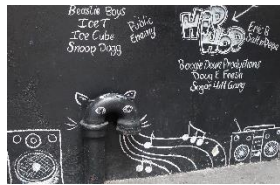 Beastie Boys
Ice T
Ice Cube
Snoop Dogg
Public
Enemy
HIP
HOP
Eric B
Boogie Down Productions
Doug E Fresh
Sugar Hill Gang